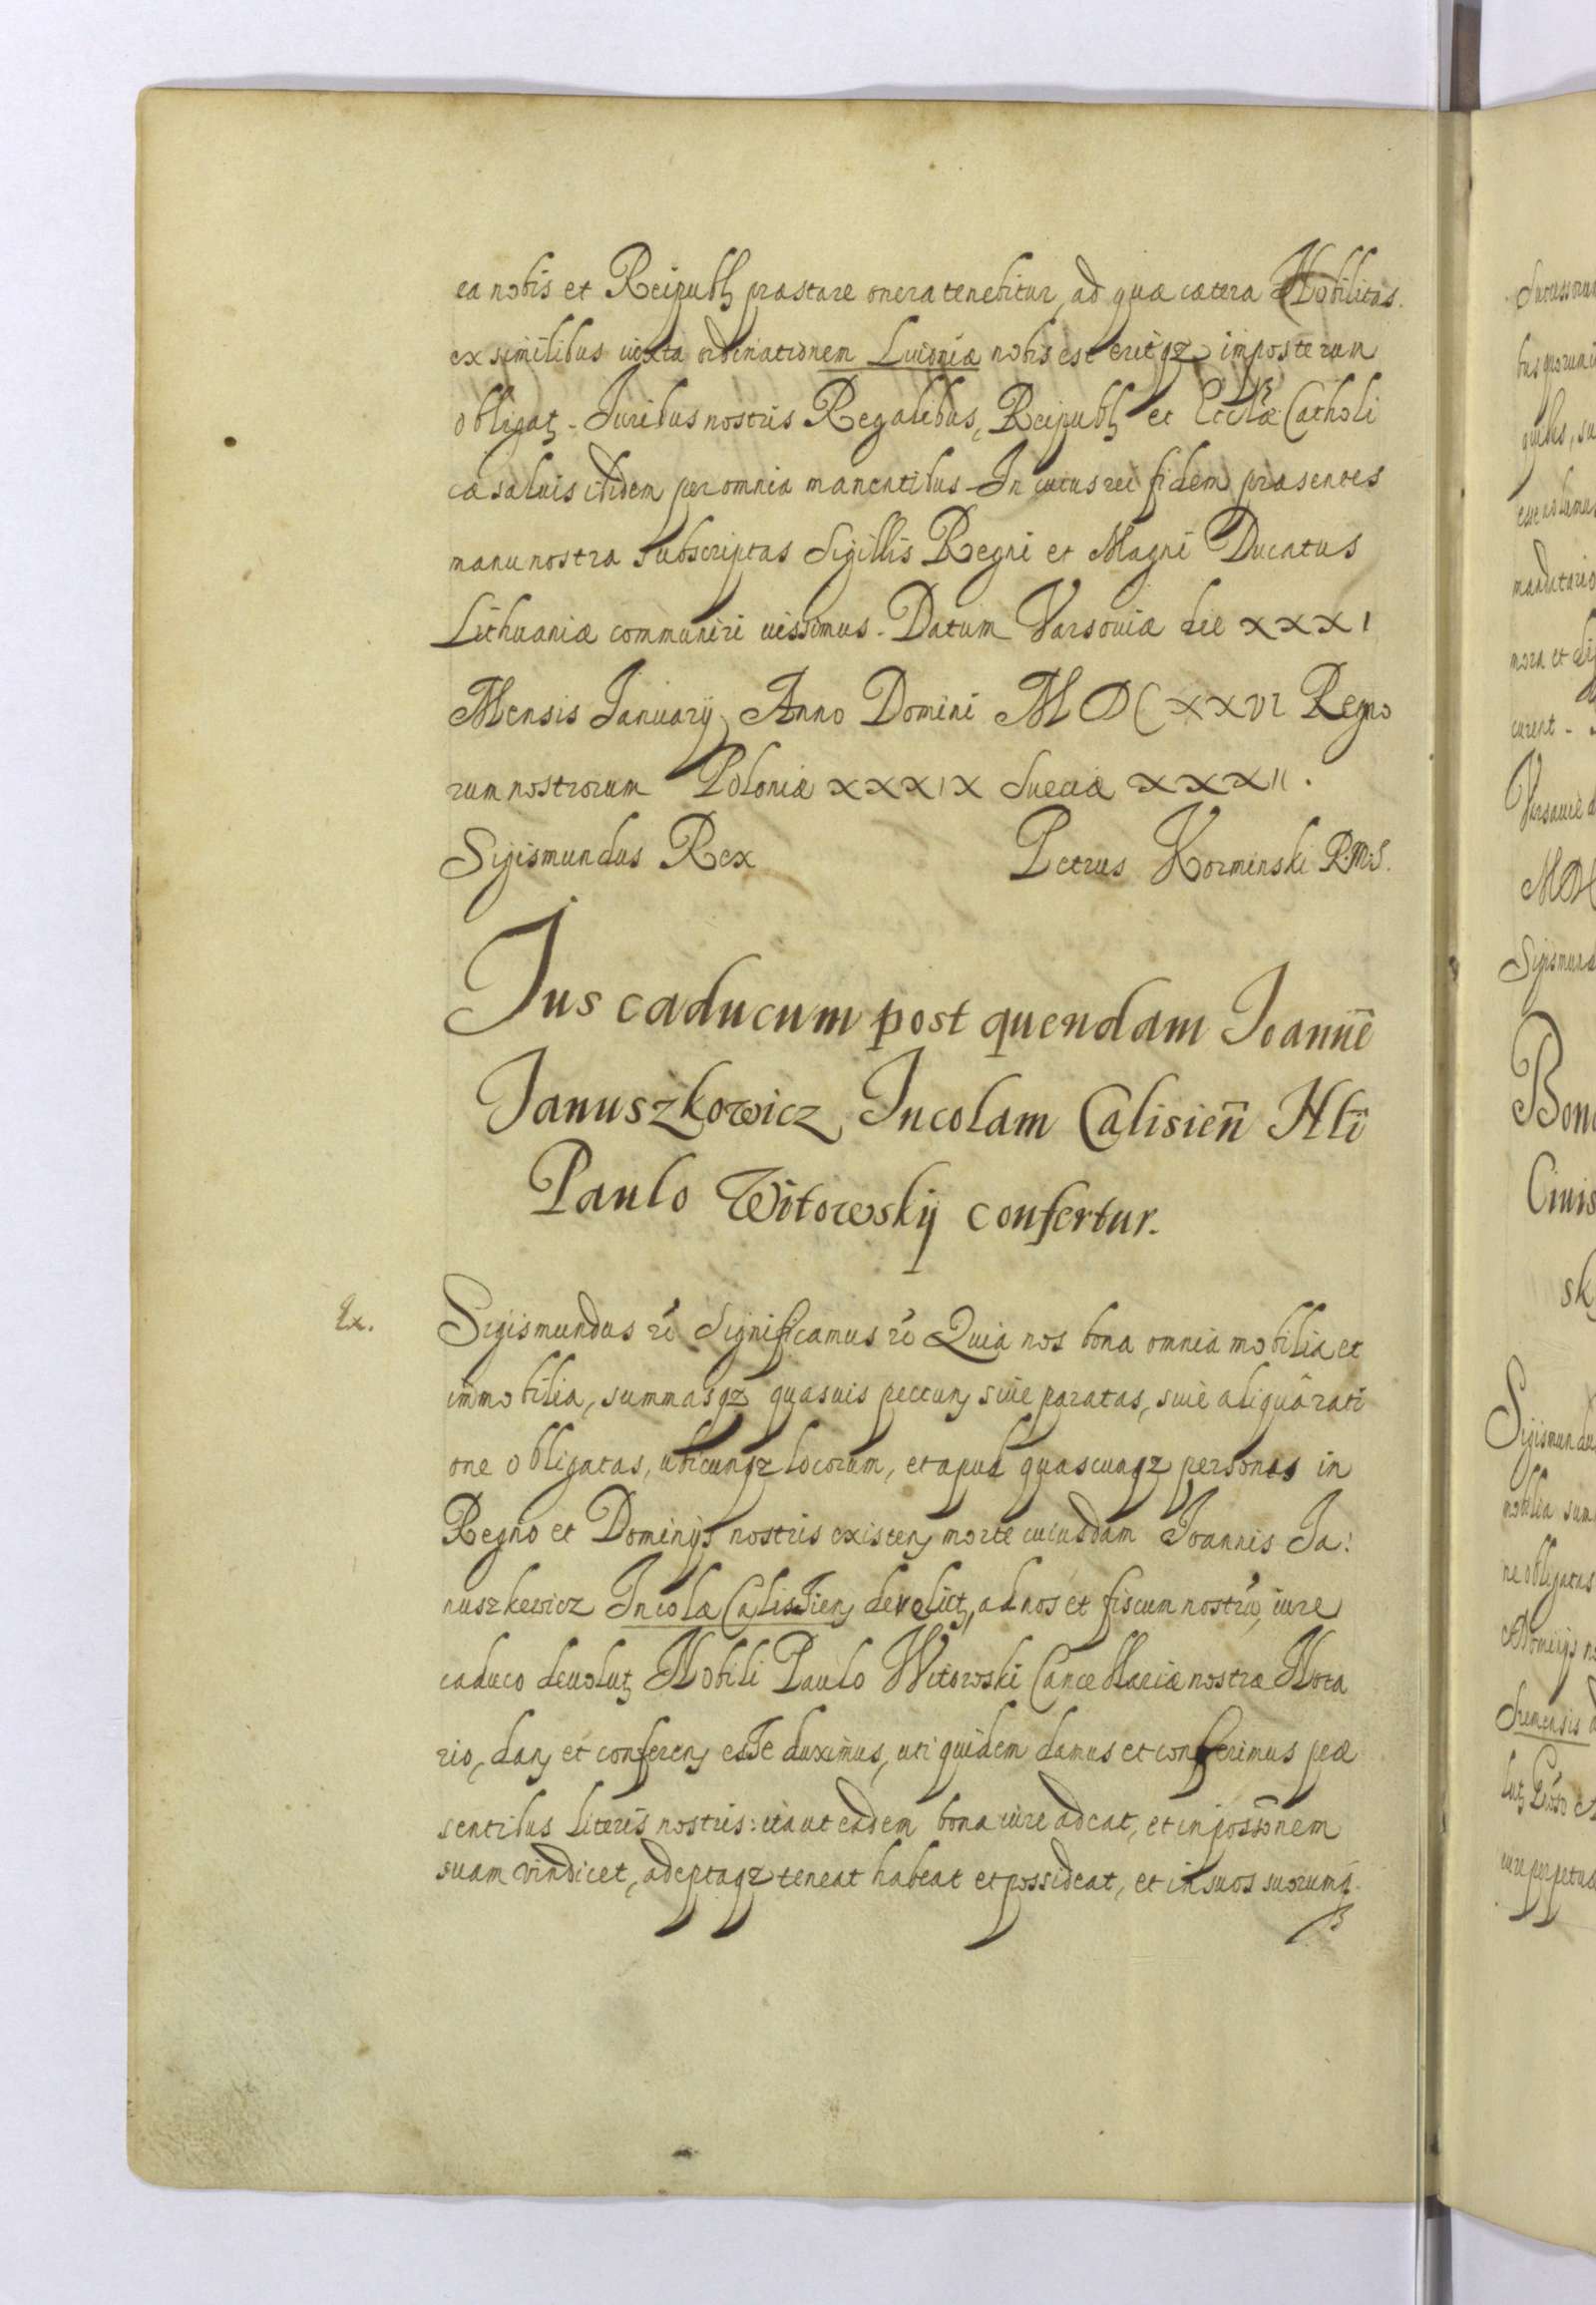 ea nobis et Reipubl præstare onera tenebitur, ad quæ cætera Nobilitas.
ex similibus iuxta ordinationem Liuoniæ nobis est eritqz imposterum
obligat. Juribus nostris Regalibus, Reipubl et Eccłæ Catholi
cæ saluis ibidem per omnia manentibus. In cuius rei fidem præsentes
manu nostra subscriptas Sigillis Regni et Magni Ducatus
Lithuaniæ communiri iussimus. Datum Varsouiæ die XXXI
Mensis Januarij Anno Domini MDCXXVI Regno
rum nostrorum Poloniæ XXXIX Sueciæ XXXII.
Sigismundus Rex Petrus Korminski R.M.S.
Jus caducum post quendam Joannē
Januszkowicz Incolam Calisieñ
Paulo Witowskij confertur.
Ex.
Sigismundus Significamus Quia nos bona omnia mobilia et
im̄mobilia, summasqz quasuis peccun siue paratas, siue aliquâ rati
one obligatas, ubicunqz locorum, et apud quascunqz personas in
Regno et Dominijs nostris existen morte cuiusdam Joannis Ja:
nuszkewicz Incolæ Calissien derelict, ad nos et fiscum nostrū, iure
caduco deuolut Nobili Paulo Witowski Cancellariæ nostræ Nota
rio, dan et conferen esse duximus, uti quidem damus et conferimus præ
sentibus literis nostris: ita ut eadem bona iure adeat, et in possōnem
suam vindicet, adeptaqz teneat habeat et possideat, et in suos suorumq